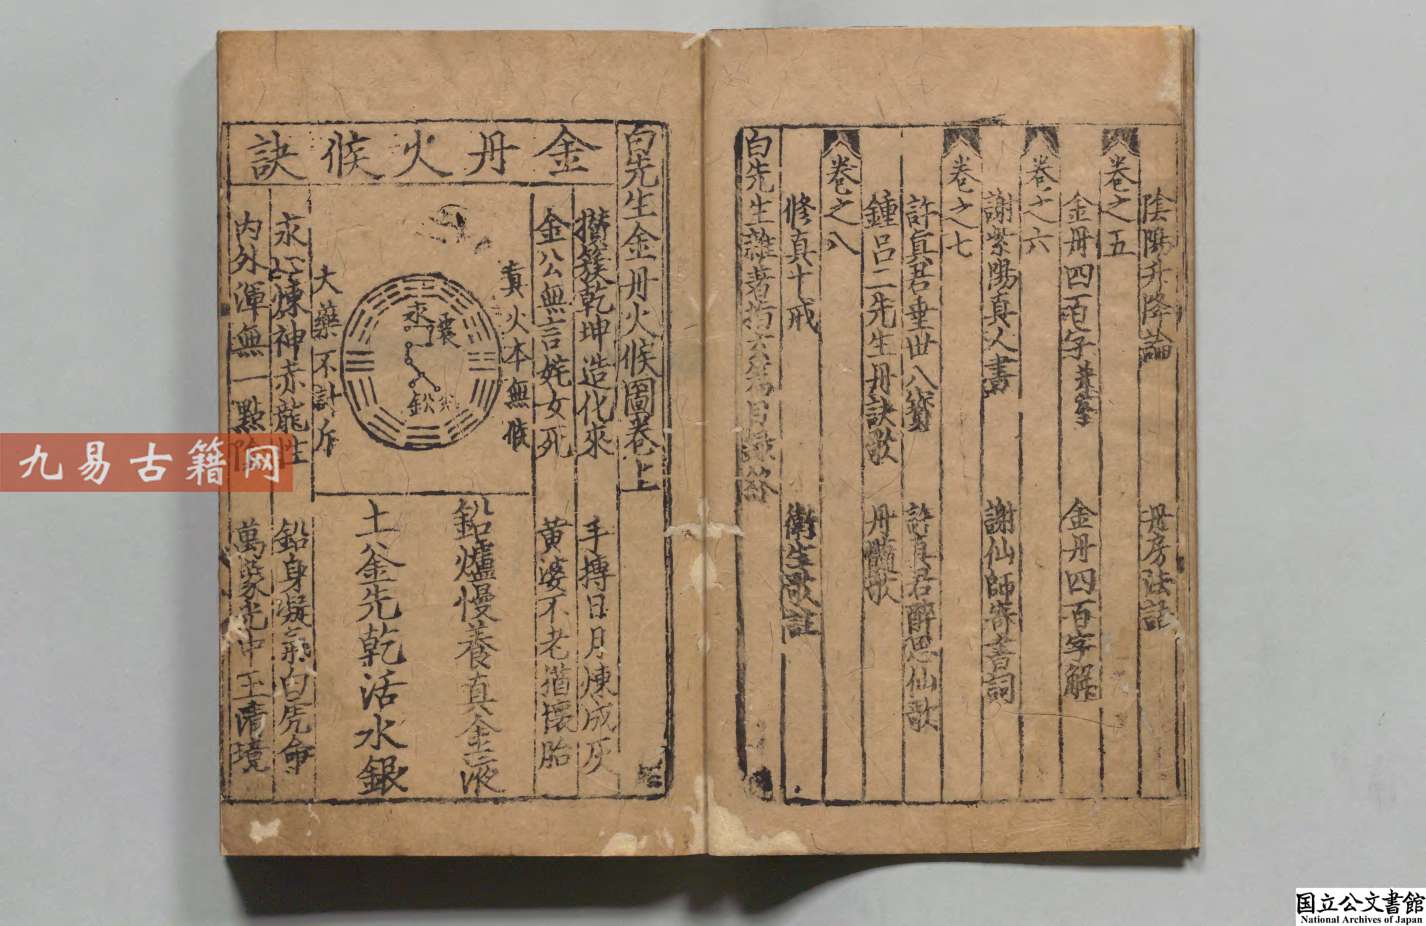 陰陽升降論 丹房法語
卷之五
金丹四百字 金丹四百字解
卷之六
謝紫陽真人書 謝仙師寄書詞
卷之七
許真君垂世八寶 許真君醉思仙歌
鍾呂二先生丹訣歌 丹髓歌
卷之八
修真十戒 衛生歌註
白先生雜著指玄篇目錄終
白先生金丹火候圖卷上
金丹火候訣
攅簇乾坤造化來 手摶日月煉成灰
金公無言姹女死 黃婆不老猶懷胎
真火本無候
大藥不計斤
汞
鉛爐慢養真金液
土釜先乾活水銀
永心煉神赤龍性 鉛身凝氣白虎命
內外渾無一點陰 萬象光中玉清境
九易古籍网
国立公文書館
National Archives of Japan